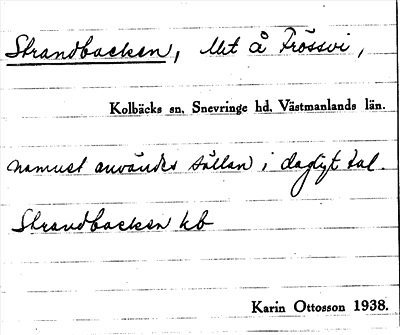 Strandbacken, Utt å Frössvi,
Kolbäcks sn. Snevringe hd. Västmanlands län.
namnet användes sällan i dagligt tal.
Strandbacken kb
Karin Ottosson 1938.